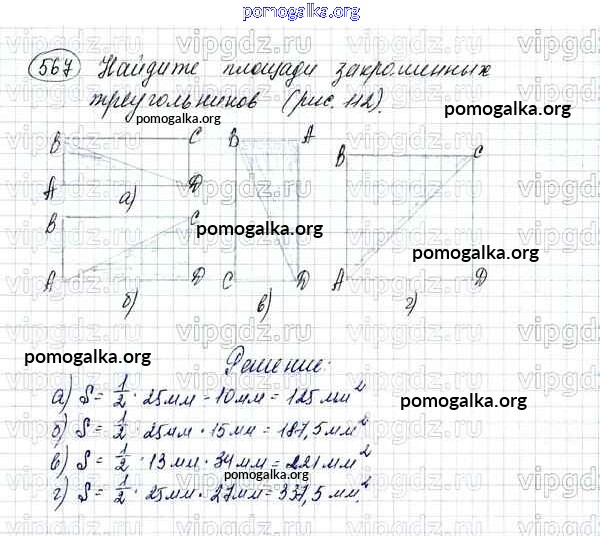 pomogalka.org
567 Найдите площади закрашенных
треугольников (рис. 112).
pomogalka.org
pomogalka.org
B C B A B C
A D
а)
B C
pomogalka.org
pomogalka.org
A D C D A D
б) в) г)
pomogalka.org
Решение:
а) S = 1/2 · 25мм · 10мм = 125 мм²
pomogalka.org
б) S = 1/2 · 25мм · 15мм = 187,5мм²
в) S = 1/2 · 13мм · 34мм = 221мм²
pomogalka.org
г) S = 1/2 · 25мм · 27мм = 337,5мм².
vipgdz.ru